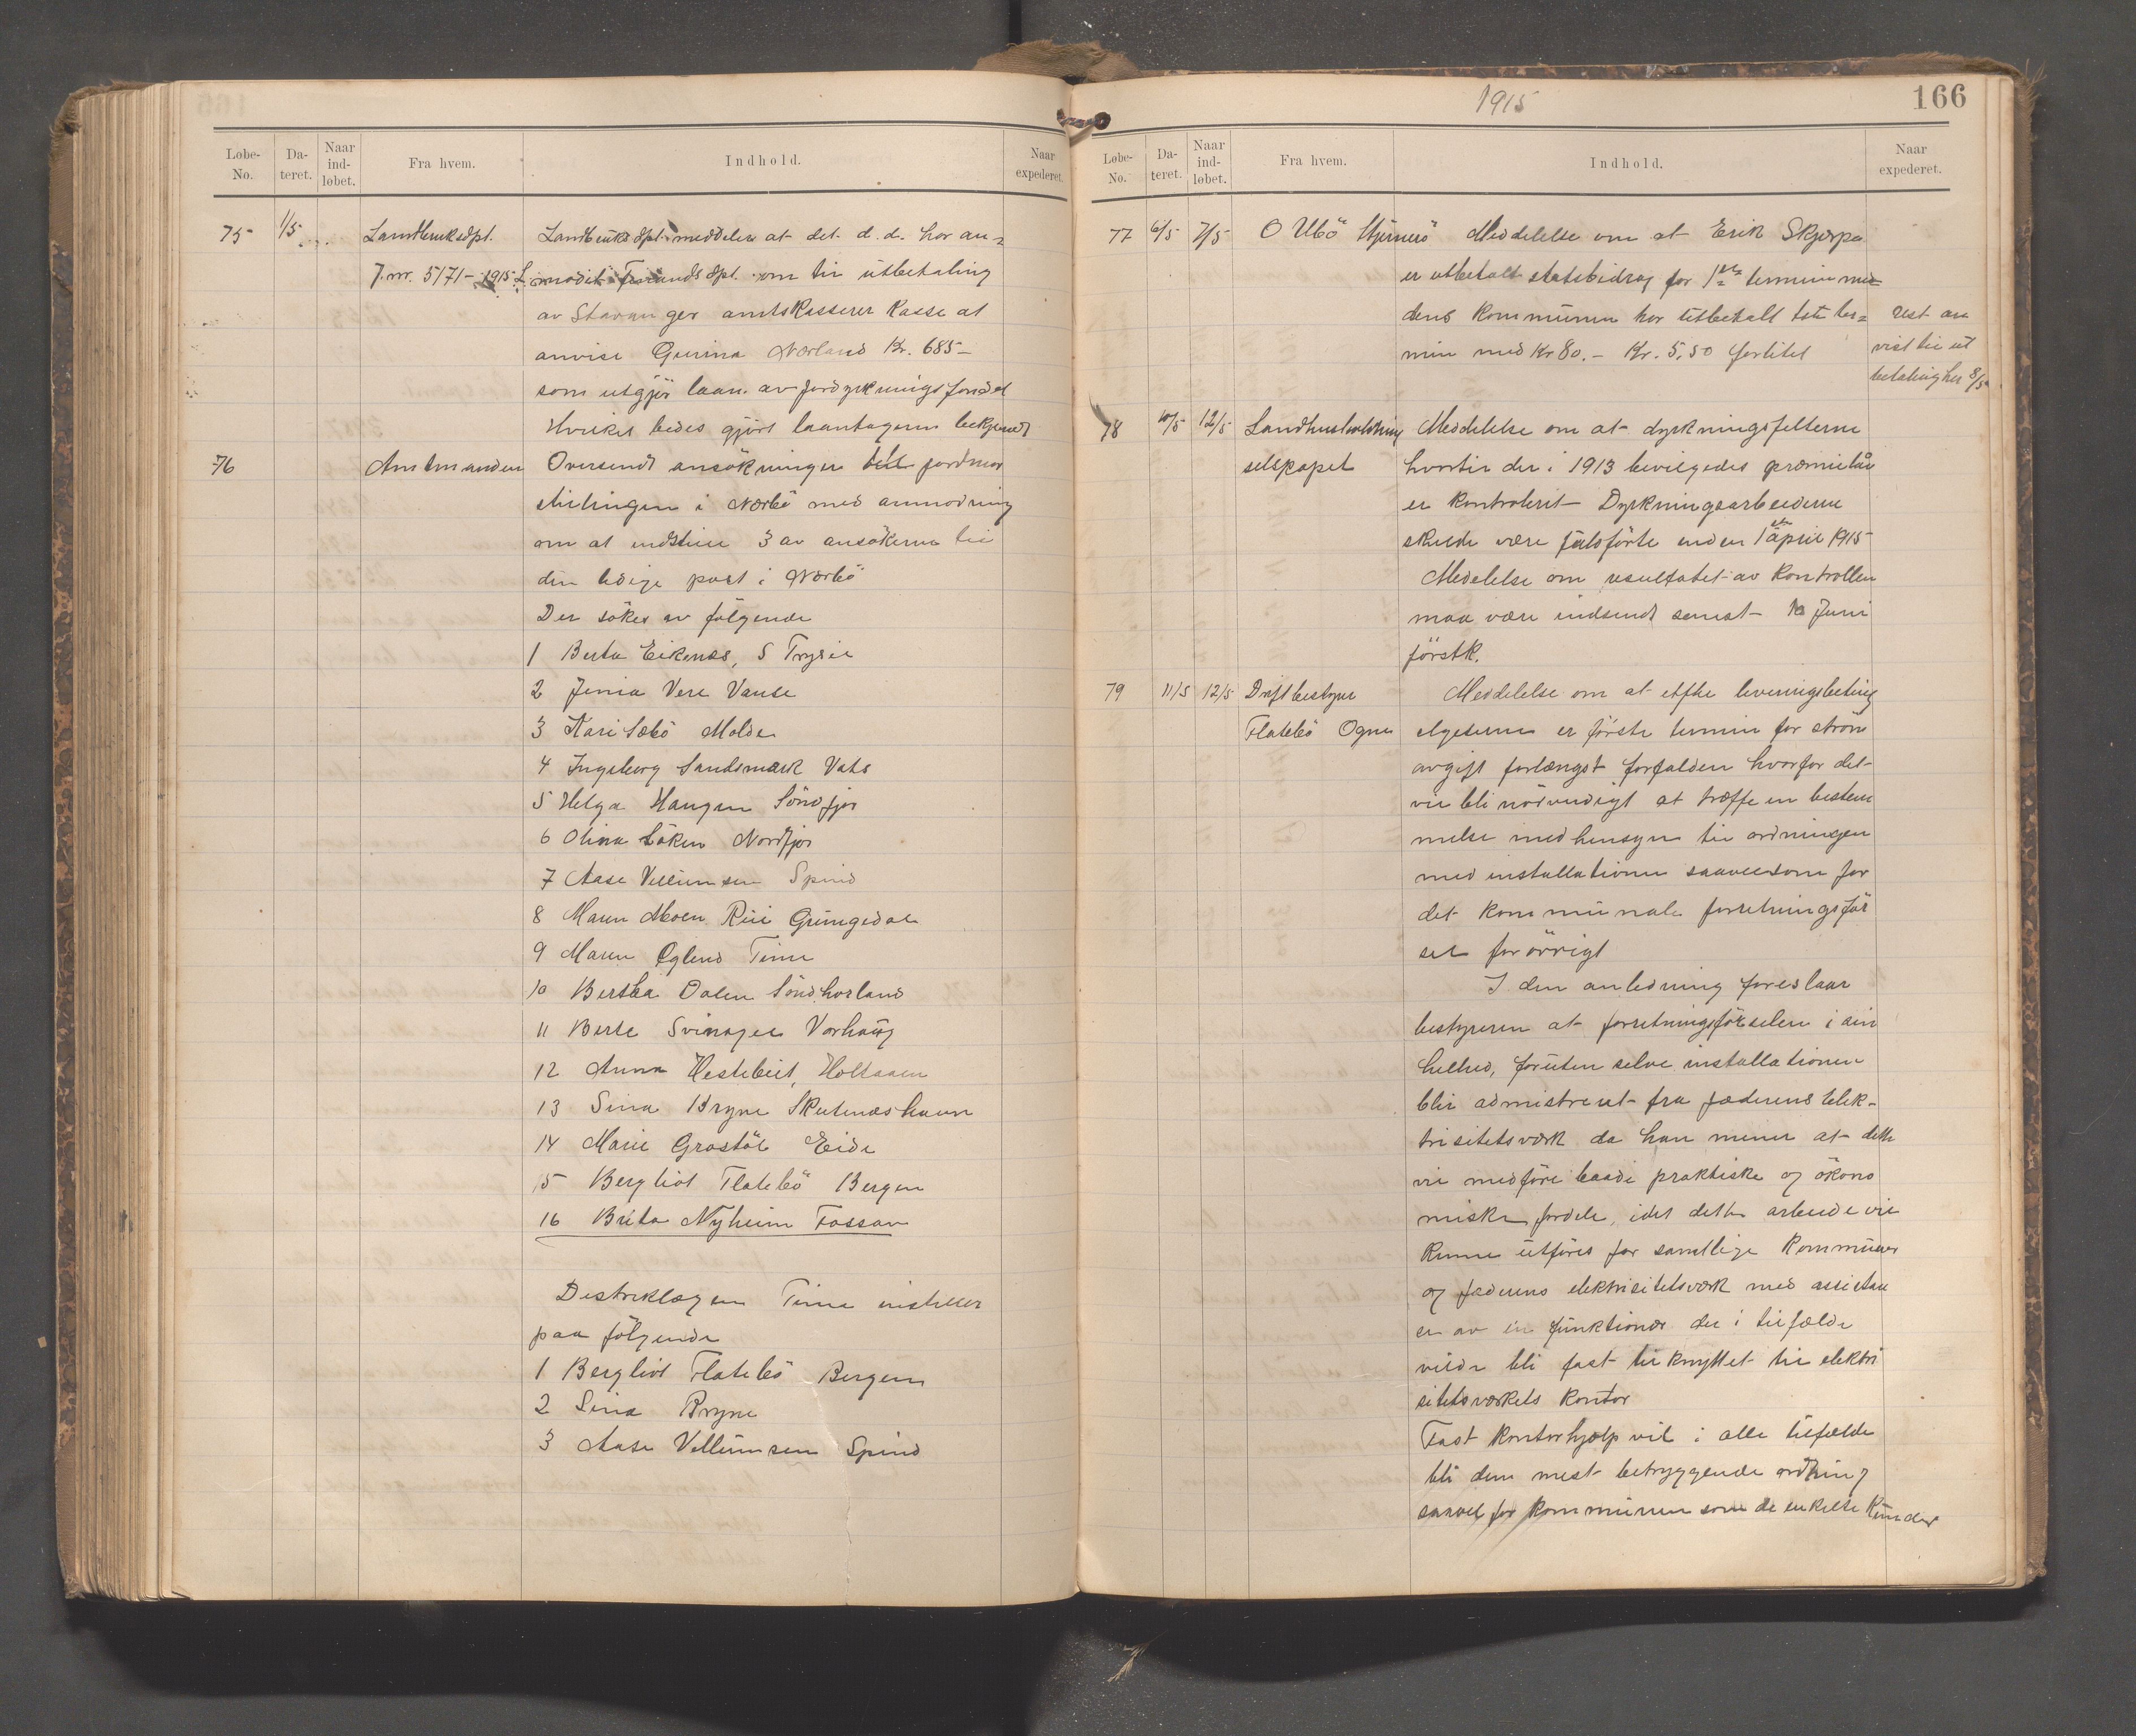 Løbe-No. Dateret. Naar indløbet. Fra hvem. Indhold. Naar expederet.
75 1/5 Landbruksdpt. Landbruksdpt. meddeler at det d.d. har an=
J.nr. 5171-1915 L. modet Finandsdpt. om til utbetaling
av Stavanger amtskasserer kasse at
anvise Gurina Nærland Kr. 685-
som utgjör laan av jorddyrkningsfondet
Hvilket bedes gjort laantageren bekjendt
76 Amtmanden Oversendt ansökninger til jordmor
stillingen i Nærbö med anmodning
om at indstille 3 av ansökerne til
den ledige post i Nærbö
Der sökes av fölgende
1 Berta Eikenæs, S Trysil
2 Jenia Vere Vanse
3 Kari Sæbö Molde
4 Ingeborg Sandsmark Vats
5 Helga Haugen Söndfjor
6 Olina Löken Nordfjor
7 Aase Vellumsen Spind
8 Maren Moen Rui Grungedal
9 Maren Eglend Time
10 Bertha Dalen Söndhorland
11 Berte Svinager Varhaug
12 Anna Hestebeit, Holtaalen
13 Sina Bryne Skutenæshavn
14 Marie Grastöl Eide
15 Bergliot Flatebö Bergen
16 Brita Nyheim Fossan
Destriktlægen Time instiller
paa fölgende
1 Bergliot Flatebö Bergen
2 Sina Bryne
3 Aase Vellumsen Spind
1915
166
Løbe-No. Dateret. Naar indløbet. Fra hvem. Indhold. Naar expederet.
77 6/5 7/5 O Ubö Meddelelse om at Erik Skjærpe
er utbetalt statsbidrag for 1ste termin me=
dens kommunen har utbetalt 1ste ter= rest an
min med Kr 80.- Kr. 5,50 forlitet vist til ut
betaling her 8/5
78 10/5 12/5 Landhusholdning Meddelelse om at dyrkningsfelterne
selskapet hvortil der i 1913 bevilgedes præmielån
er kontrolert Dyrkningsarbeiderne
skulde være fuldförte inden 1ste april 1915
Medelelse om resultatet av kontrollen
maa være indsendt senest 10 Juni
förstk.
79 11/5 12/5 Driftbestyrer Meddelelse om at efter leveringsbeting
Flatebö Ogna elgeserne er förste termin for ström
avgift forlængst forfalden hvorfor det
vil bli nödvendigt at træffe en bestem
melse med hensyn til ordningen
med installationer saavelsom for
det kommunale forretningsför
sel forövrigt
I den anledning foreslaar
bestyreren at forretningsförselen i sin
helhed, foruten selve installationen
blir admistreret fra Jæderens Elek-
trisitetsværk da han mener at dette
vil medföre baade praktiske og ökono
miske fordele, idet dette arbeide vil
kunne utföres for samtlige kommuner
og Jæderens elektrisitetsværk med assistan
se av en funktionær der i tilfælde
vilde bli fast tilknyttet til elektri
sitetsværkets kontor
Fast kontorhjælp vil i alle tilfælde
bli den mest betryggende ordning
saavel for kommunen som de enkelte kunder